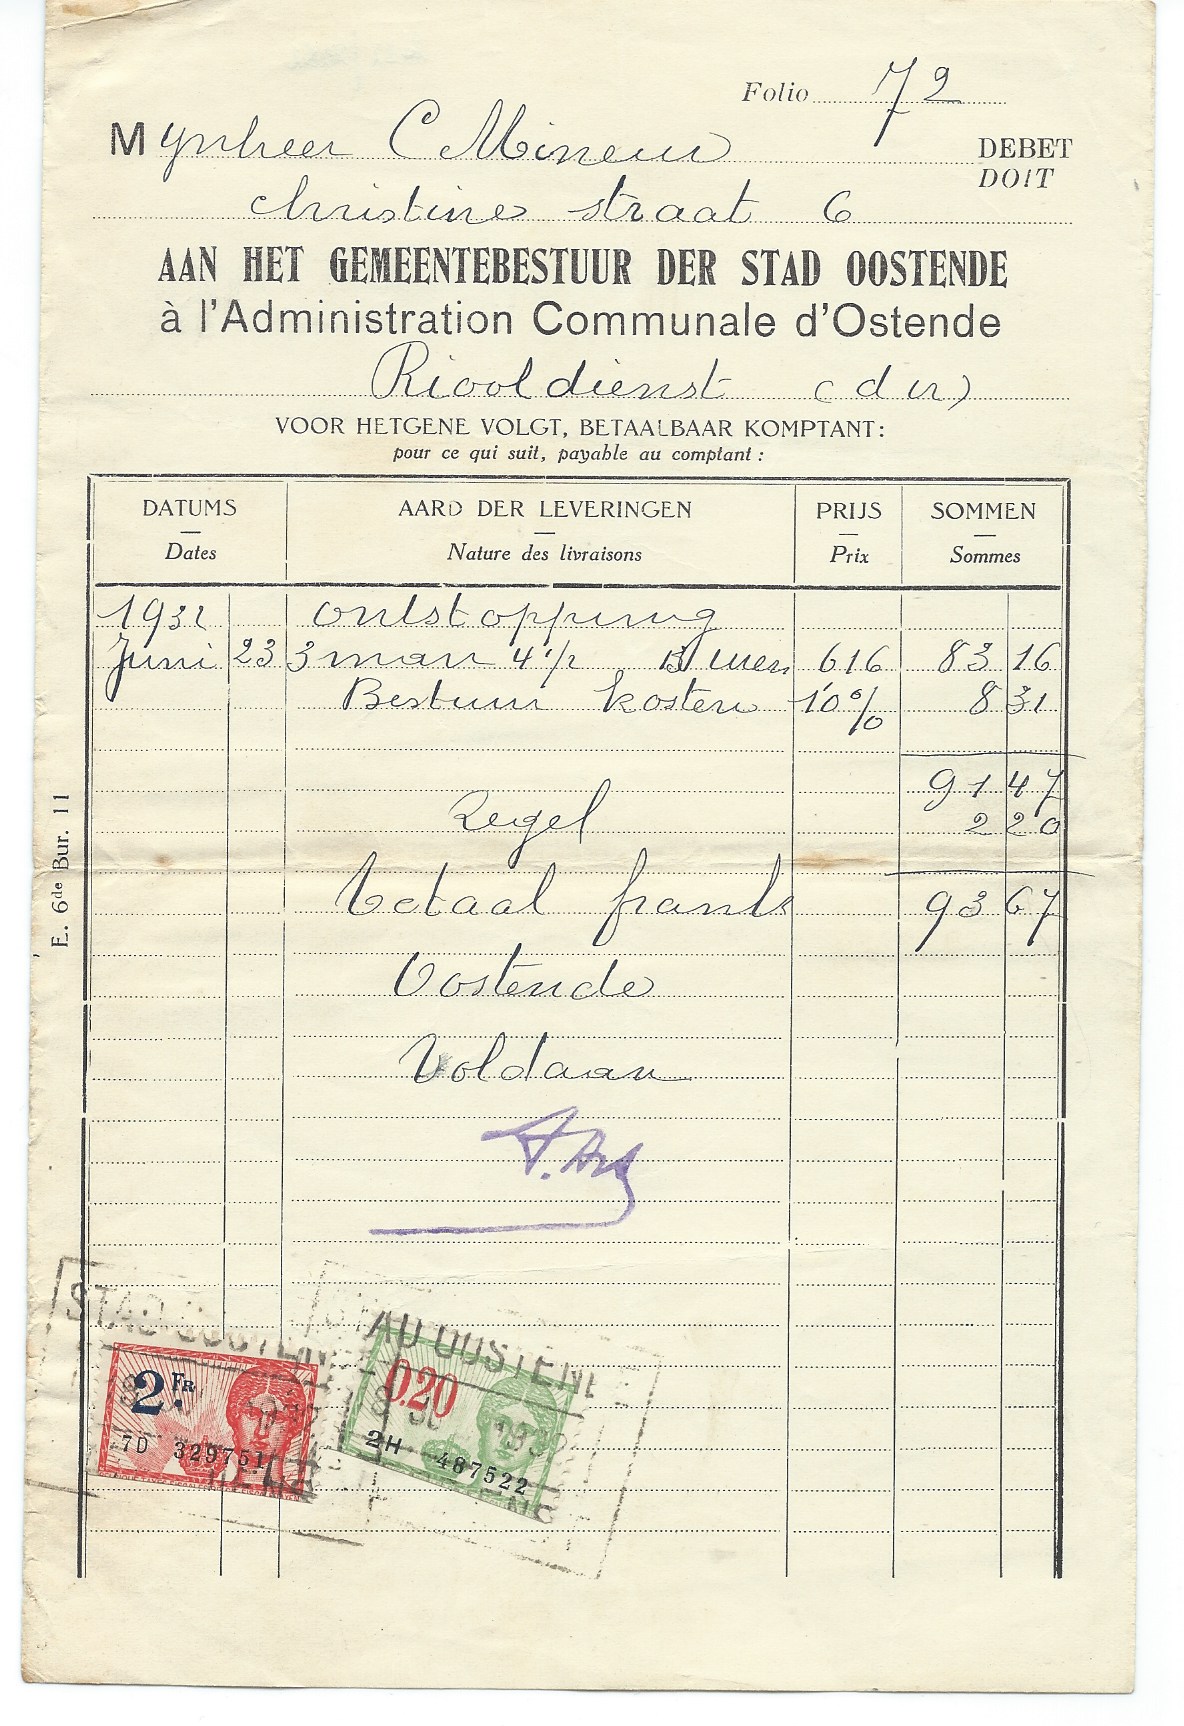 Folio 72
Mynheer C Mineur
DEBET
DOIT
christine straat 6
AAN HET GEMEENTEBESTUUR DER STAD OOSTENDE
à l'Administration Communale d'Ostende
Riooldienst (dur)
VOOR HETGENE VOLGT, BETAALBAAR KOMPTANT:
pour ce qui suit, payable au comptant :
DATUMS AARD DER LEVERINGEN PRIJS SOMMEN
Dates Nature des livraisons Prix Sommes
1932 ontstopping
Juni 23 3 man 4 1/2 uren 616 83 16
Bestuur kosten 10% 8 31
91 47
Zegel 2 20
Totaal frank 93 67
Oostende
Voldaan
E. 6de Bur. 11
STAD OOSTENDE
STAD OOSTENDE
2 FR
0.20
7D 329751
2H 487522